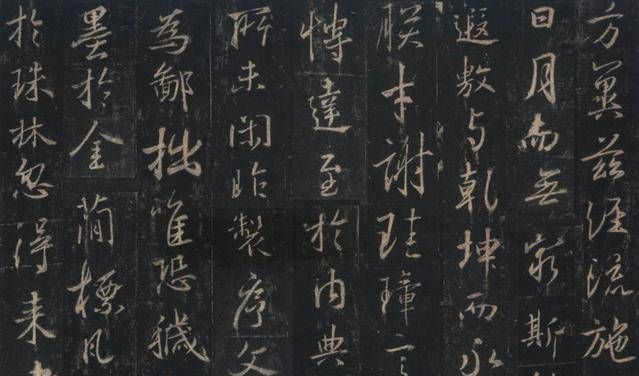 方冀茲經流施
日月而無窮斯
遐敷与乾坤而永
朕才謝珪璋言
博達至於內典
所未閑昨製序文
為鄙拙唯恐穢
墨於金簡標瓦
於珠林忽得来